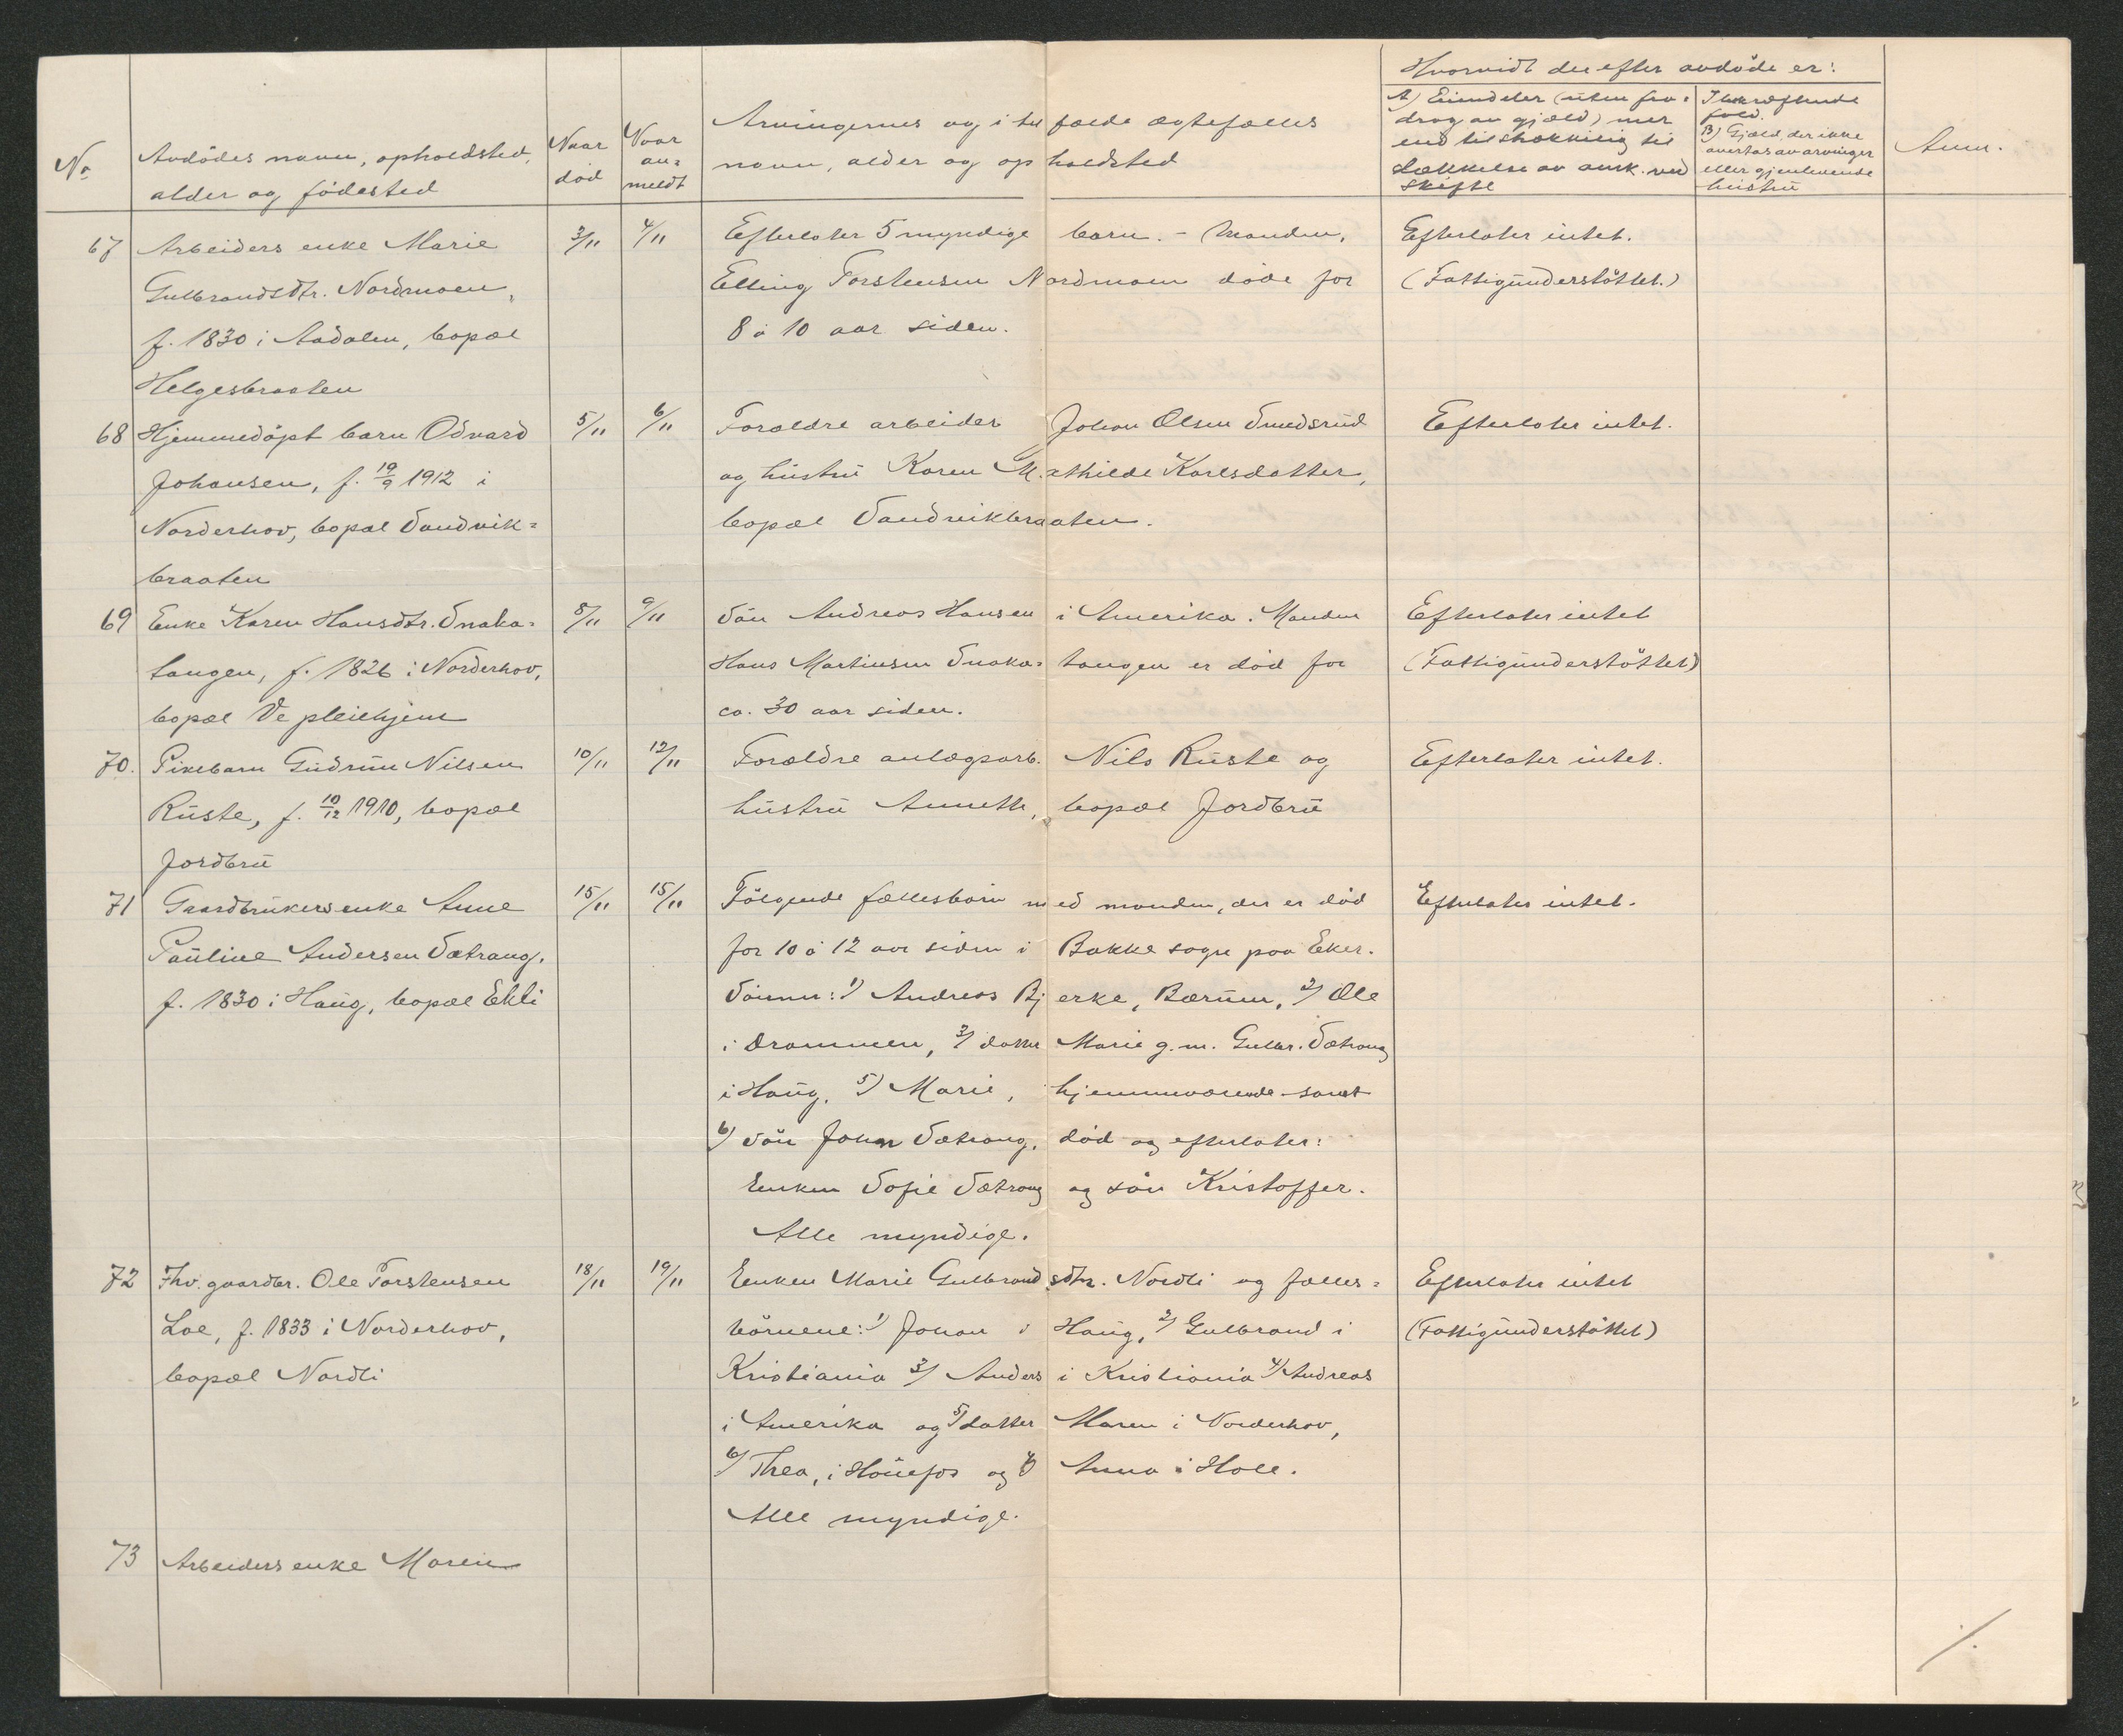 Hvorvidt der efter avdöde er:
No
Avdödes navn, opholdsted,
alder og födested
Naar
död
Naar
an=
meldt
Arvingernes og i tilfælde ægtefælles
navn, alder og opholdsted
A) Eiendeler (uten fra=
drag av gjæld) mer
end tilstrækkelig til
dækkelse av omk. ved
skifte
I bekræftende
fald.
B) Gjæld, der ikke
overtas av arvinger
eller gjenlevende
hustrü
Anm.
67 Arbeiders enke Marie 3/11 4/11 Efterlater 5 myndige barn. - Manden, Efterlater intet.
Gulbrandsdtr. Nordmoen, Elling Torstensen Nordmoen döde for (Fattigünderstöttet.)
f. 1830 i Aadalen, bopæl 8 à 10 aar siden.
Helgesbraaten
68 Hjemmedöpt barn Odvard 5/11 6/11 Forældre arbeider Johan Olsen Smedsrüd Efterlater intet.
Johansen, f. 19/9 1912 i og hüstrü Karen Mathilde Karlsdatter,
Norderhov, bopæl Sandvik= bopæl Sandvikbraaten.
braaten
69 Enke Karen Hansdtr. Snaka= 8/11 9/11 Sön Andreas Hansen i Amerika. Manden Efterlater intet
tangen, f. 1826 i Norderhov, Hans Martinsen Snaka=tangen er död for (Fattigünderstöttet)
bopæl Ve pleiehjem ca. 30 aar siden.
70. Pikebarn Güdrün Nilsen 10/11 12/11 Forældre anlægsarb. Nils Rüste og Efterlater intet.
Rüste, f. 10/12 1910, bopæl hüstrü Annette, bopæl Jordbrü
Jordbrü
71 Gaardbrükers enke Anne 15/11 15/11 Fölgende fællesbörn med manden, der er död Efterlater intet.
Paüline Andersen Sætrang, for 10 à 12 aar siden i Bakke sogn paa Eker.
f. 1830 i Haüg, bopæl Ekli Sönner: 1) Andreas Bjerke, Bærüm, 2) Ole
i Drammen, 3) datter Marie g. m. Gulbr. Sætrang
i Haüg, 5) Marie, hjemmeværende samt
6) sön Johan Sætrang, död og efterlater:
Enken Sofie Sætrang og sön Kristoffer.
Alle myndige.
72 Fhv. gaardbr. Ole Torstensen 18/11 19/11 Enken Marie Gulbrandsdtr. Nordli og fælles= Efterlater intet
Loe, f. 1833 i Norderhov, börnene: 1) Johan i Haüg, 2) Gulbrand i (Fattigünderstöttet)
bopæl Nordli Kristiania 3) Anders i Kristiania 4) Andreas
i Amerika og 5) datter Maren i Norderhov,
6) Thea, i Hönefos og 7) Anna i Hole.
Alle myndige.
73 Arbeiders enke Maren